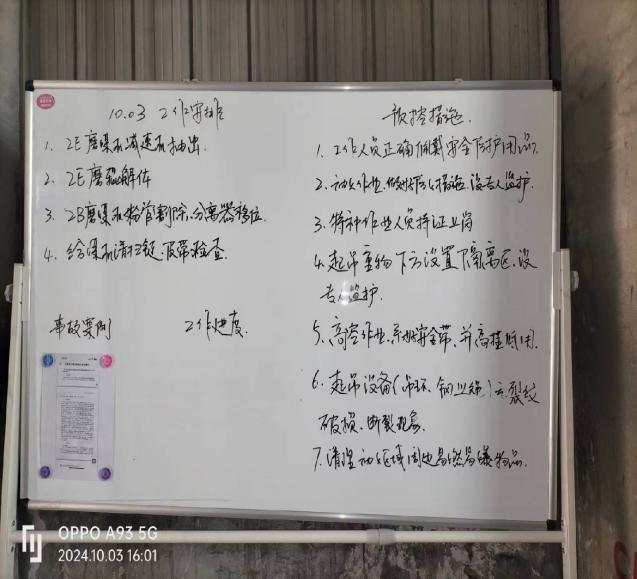 10.03 工作安排
1. 2E磨煤机减速机抽出.
2. 2E磨辊解体
3. 2B磨煤机粉管割除,分离器移位
4. 给煤机清扫链、皮带检查
事故案例
工作进度.
预控措施.
1. 工作人员正确佩戴安全防护用品.
2. 动火作业,做好防火措施,设专人监护.
3. 特种作业人员持证上岗
4. 起吊重物下方设置隔离区,设
专人监护.
5. 高空作业,系好安全带,并高挂低用.
6. 起吊设备(吊环、钢丝绳)无裂纹
破损、断裂现象.
7. 清理动火区域周边易燃易爆物品.
OPPO A93 5G
2024.10.03 16:01